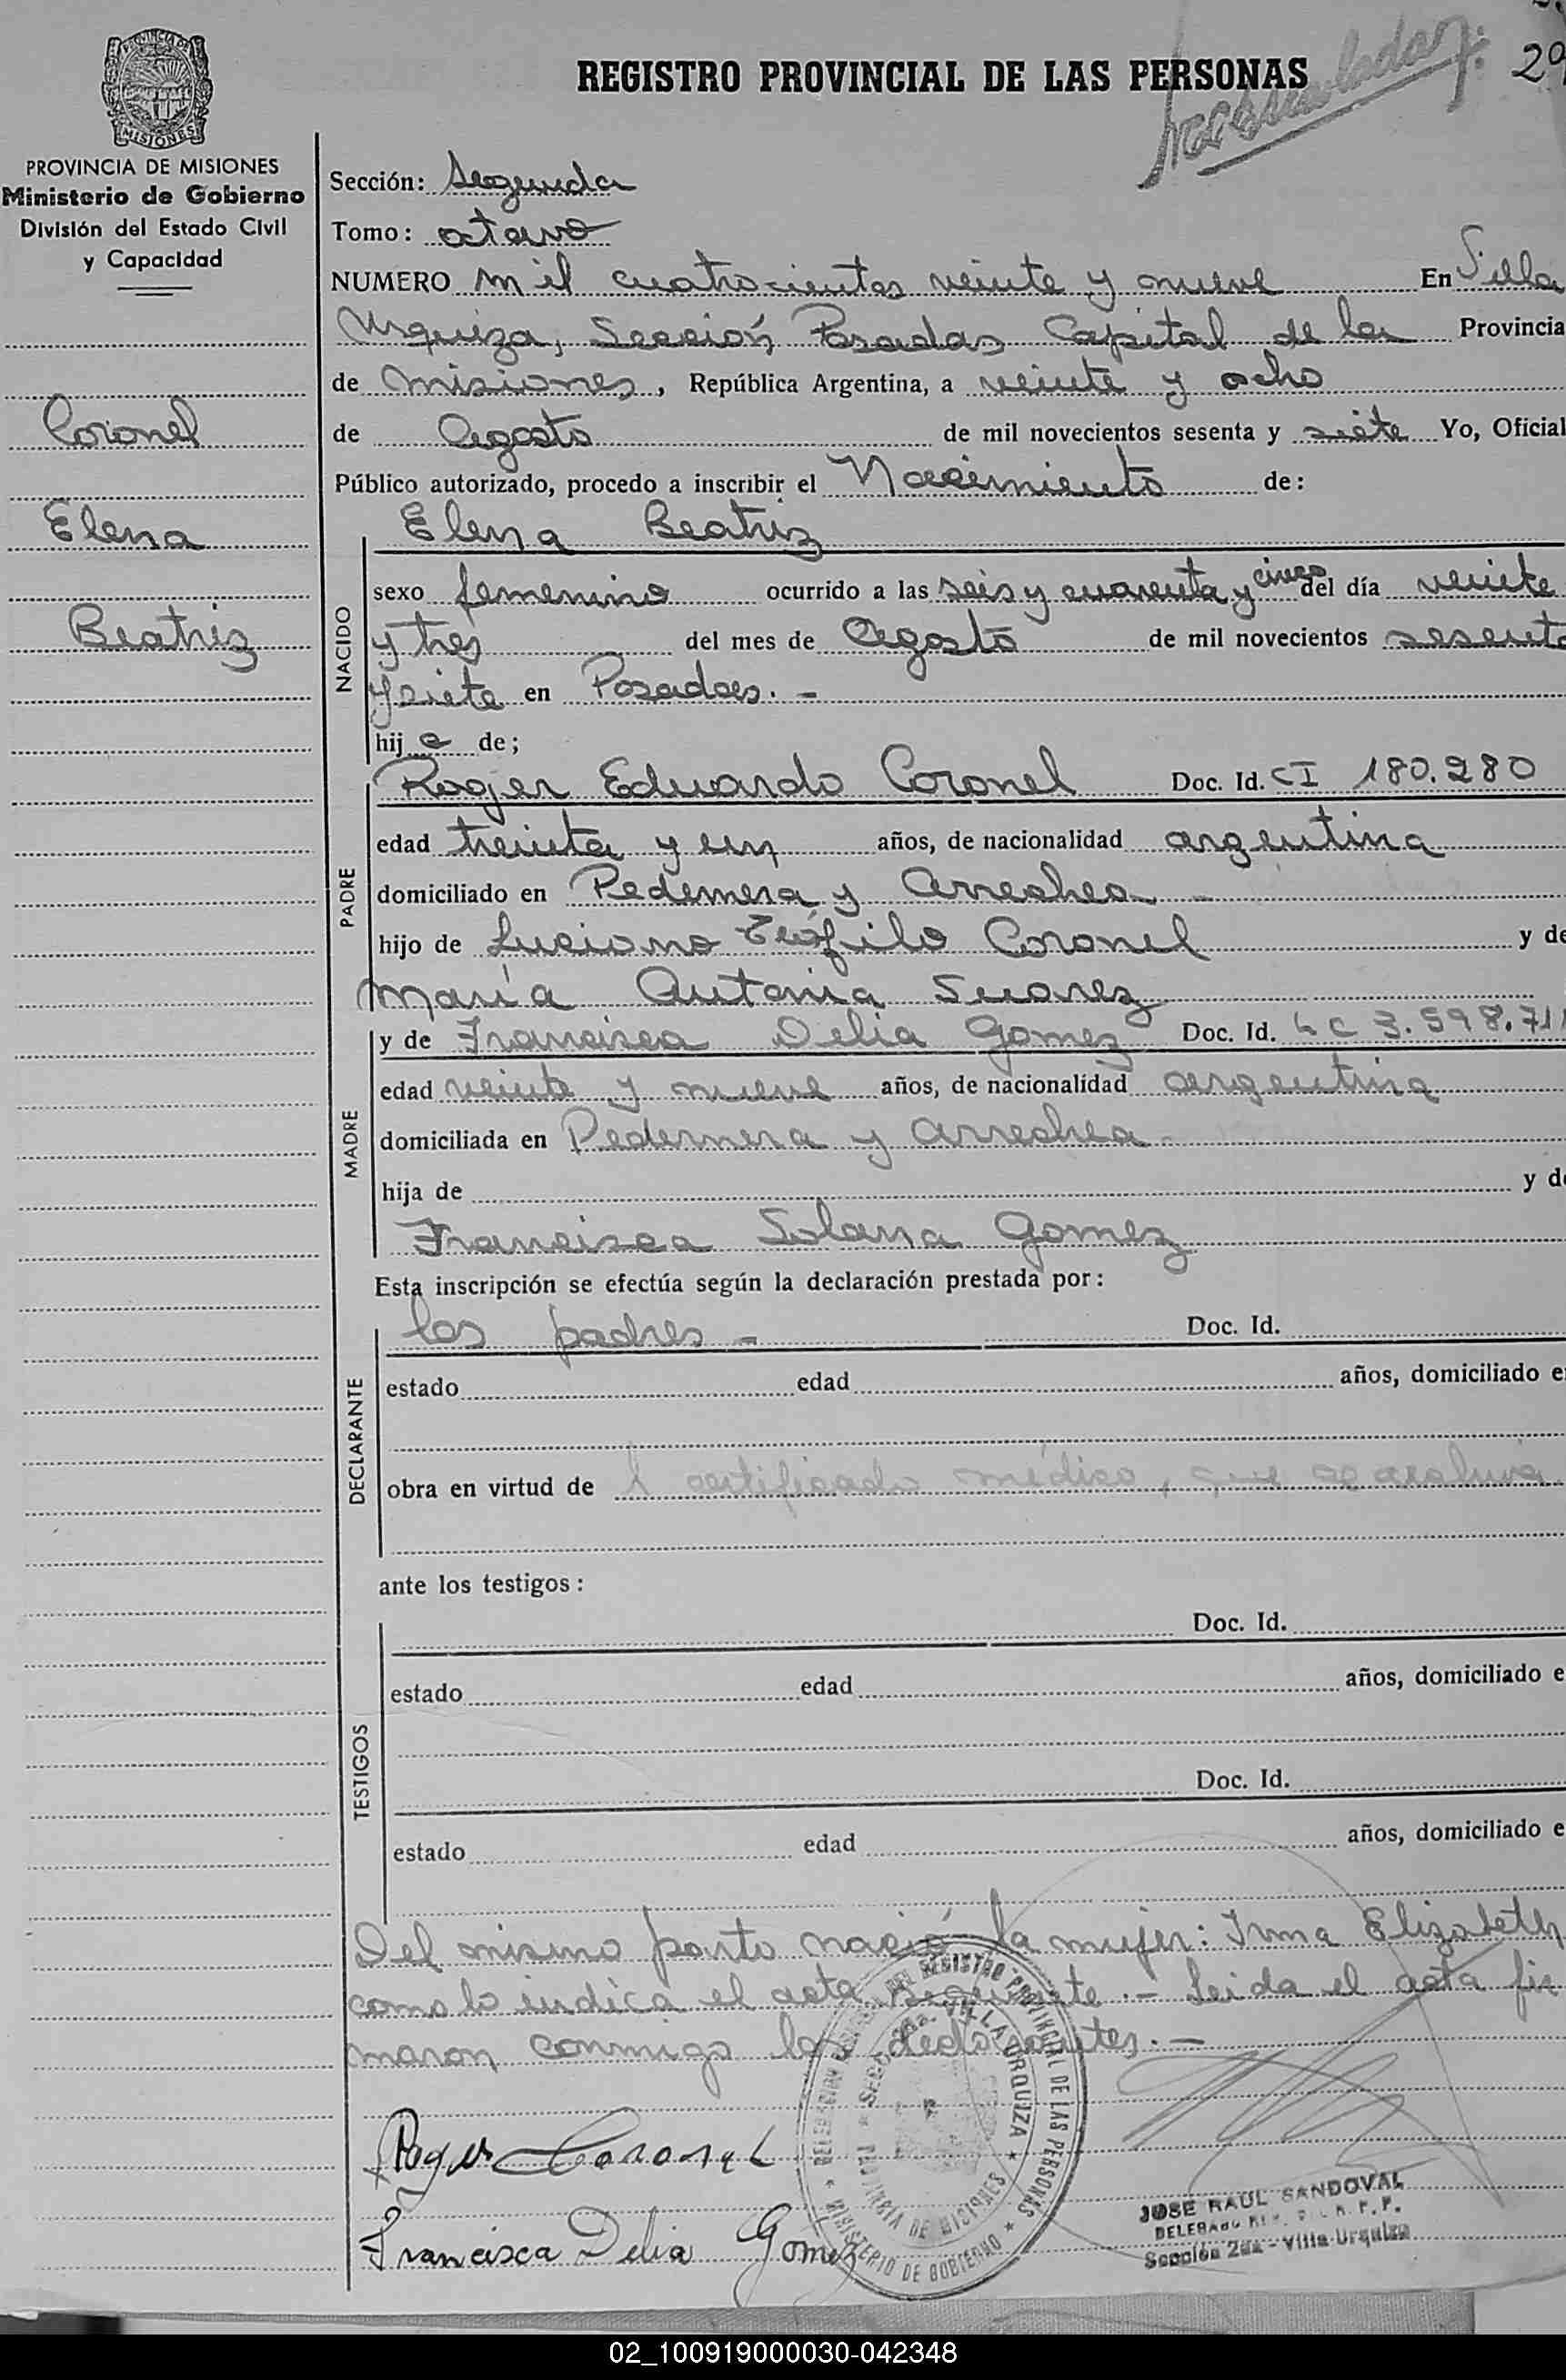 REGISTRO PROVINCIAL DE LAS PERSONAS
29
PROVINCIA DE MISIONES
MISIONES
PROVINCIA DE MISIONES
Ministerio de Gobierno
División del Estado Civil
y Capacidad
Coronel
Elena
Beatriz
Sección: Segunda
Tomo: octavo
NUMERO mil cuatrocientos veinte y nueve En Villa
Urquiza, Sección Posadas Capital de la Provincia
de Misiones, República Argentina, a veinte y ocho
de Agosto de mil novecientos sesenta y siete Yo, Oficial
Público autorizado, procedo a inscribir el Nacimiento de:
Elena Beatriz
NACIDO
sexo femenino ocurrido a las seis y cuarenta y cinco del día veinte
y tres del mes de Agosto de mil novecientos sesenta
y siete en Posadas. -
hija de;
PADRE
Roger Eduardo Coronel Doc. Id. CI 180.280
edad treinta y un años, de nacionalidad argentina
domiciliado en Pedernera y Arrechea
hijo de Luciano Teófilo Coronel y de
María Antonia Suarez
MADRE
y de Francisca Delia Gomez Doc. Id. LC 3.598.711
edad veinte y nueve años, de nacionalidad argentina
domiciliada en Pedernera y Arrechea
hija de y de
Francisca Solana Gomez
Esta inscripción se efectúa según la declaración prestada por:
DECLARANTE
los padres - Doc. Id.
estado edad años, domiciliado e
obra en virtud de certificado médico, que se archiva
ante los testigos:
TESTIGOS
Doc. Id.
estado edad años, domiciliado e
Doc. Id.
estado edad años, domiciliado e
Del mismo parto nació la mujer: Irma Elizabeth
como lo indica el acta siguiente.- Leida el acta fir
maron conmigo los declarantes.-
Roger Coronel
Francisca Delia Gomez
DEL REGISTRO PROVINCIAL DE LAS PERSONAS
MINISTERIO DE GOBIERNO
VILLA URQUIZA
PROVINCIA DE MISIONES
JOSE RAUL SANDOVAL
Sección 2da - Villa Urquiza
02_100919000030-042348